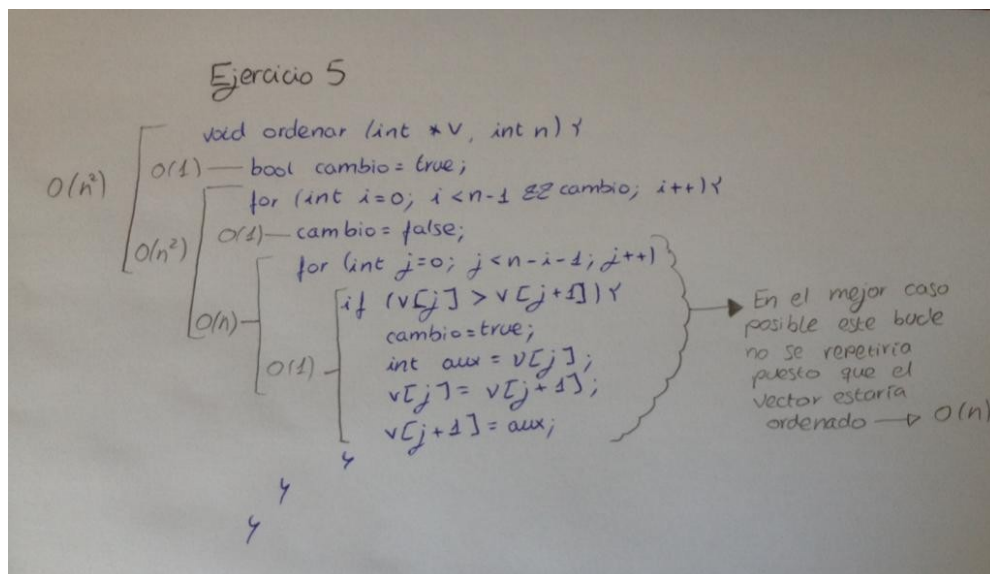 Ejercicio 5
void ordenar (int *v, int n) {
O(n²)
O(1) — bool cambio = true;
O(n²)
for (int i=0; i<n-1 && cambio; i++){
O(1) — cambio = false;
O(n)
for (int j=0; j<n-i-1; j++)
O(1)
if (v[j] > v[j+1]) {
cambio = true;
int aux = v[j];
v[j] = v[j+1];
v[j+1] = aux;
}
}
}
En el mejor caso
posible este bucle
no se repetiría
puesto que el
vector estaría
ordenado → O(n)